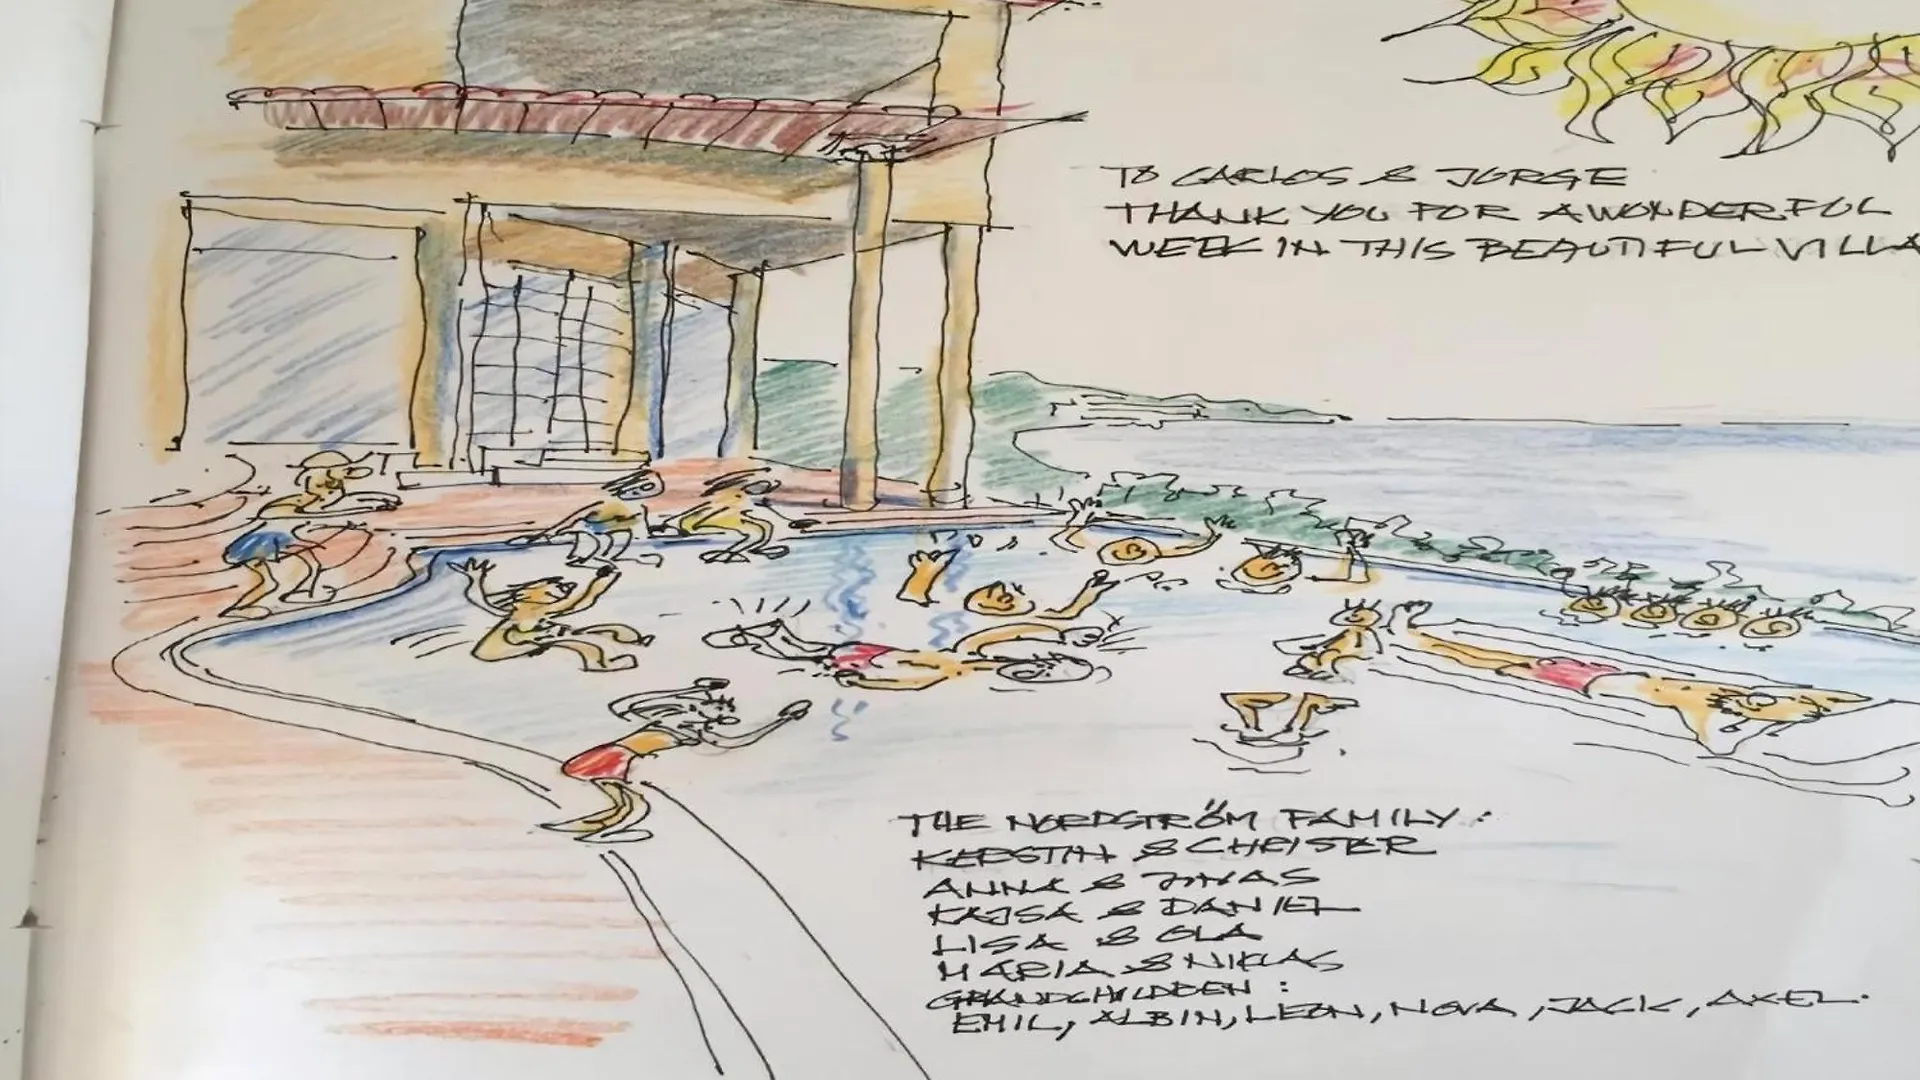 TO CARLOS & JORGE
THANK YOU FOR A WONDERFUL
WEEK IN THIS BEAUTIFUL VILLA
THE NORDSTRÖM FAMILY:
KERSTIN & CHRISTER
ANNA & JONAS
KAJSA & DANIEL
LISA & OLA
MARIA & NIKLAS
GRANDCHILDREN:
EMIL, ALBIN, LEON, NOVA, JACK, AXEL.